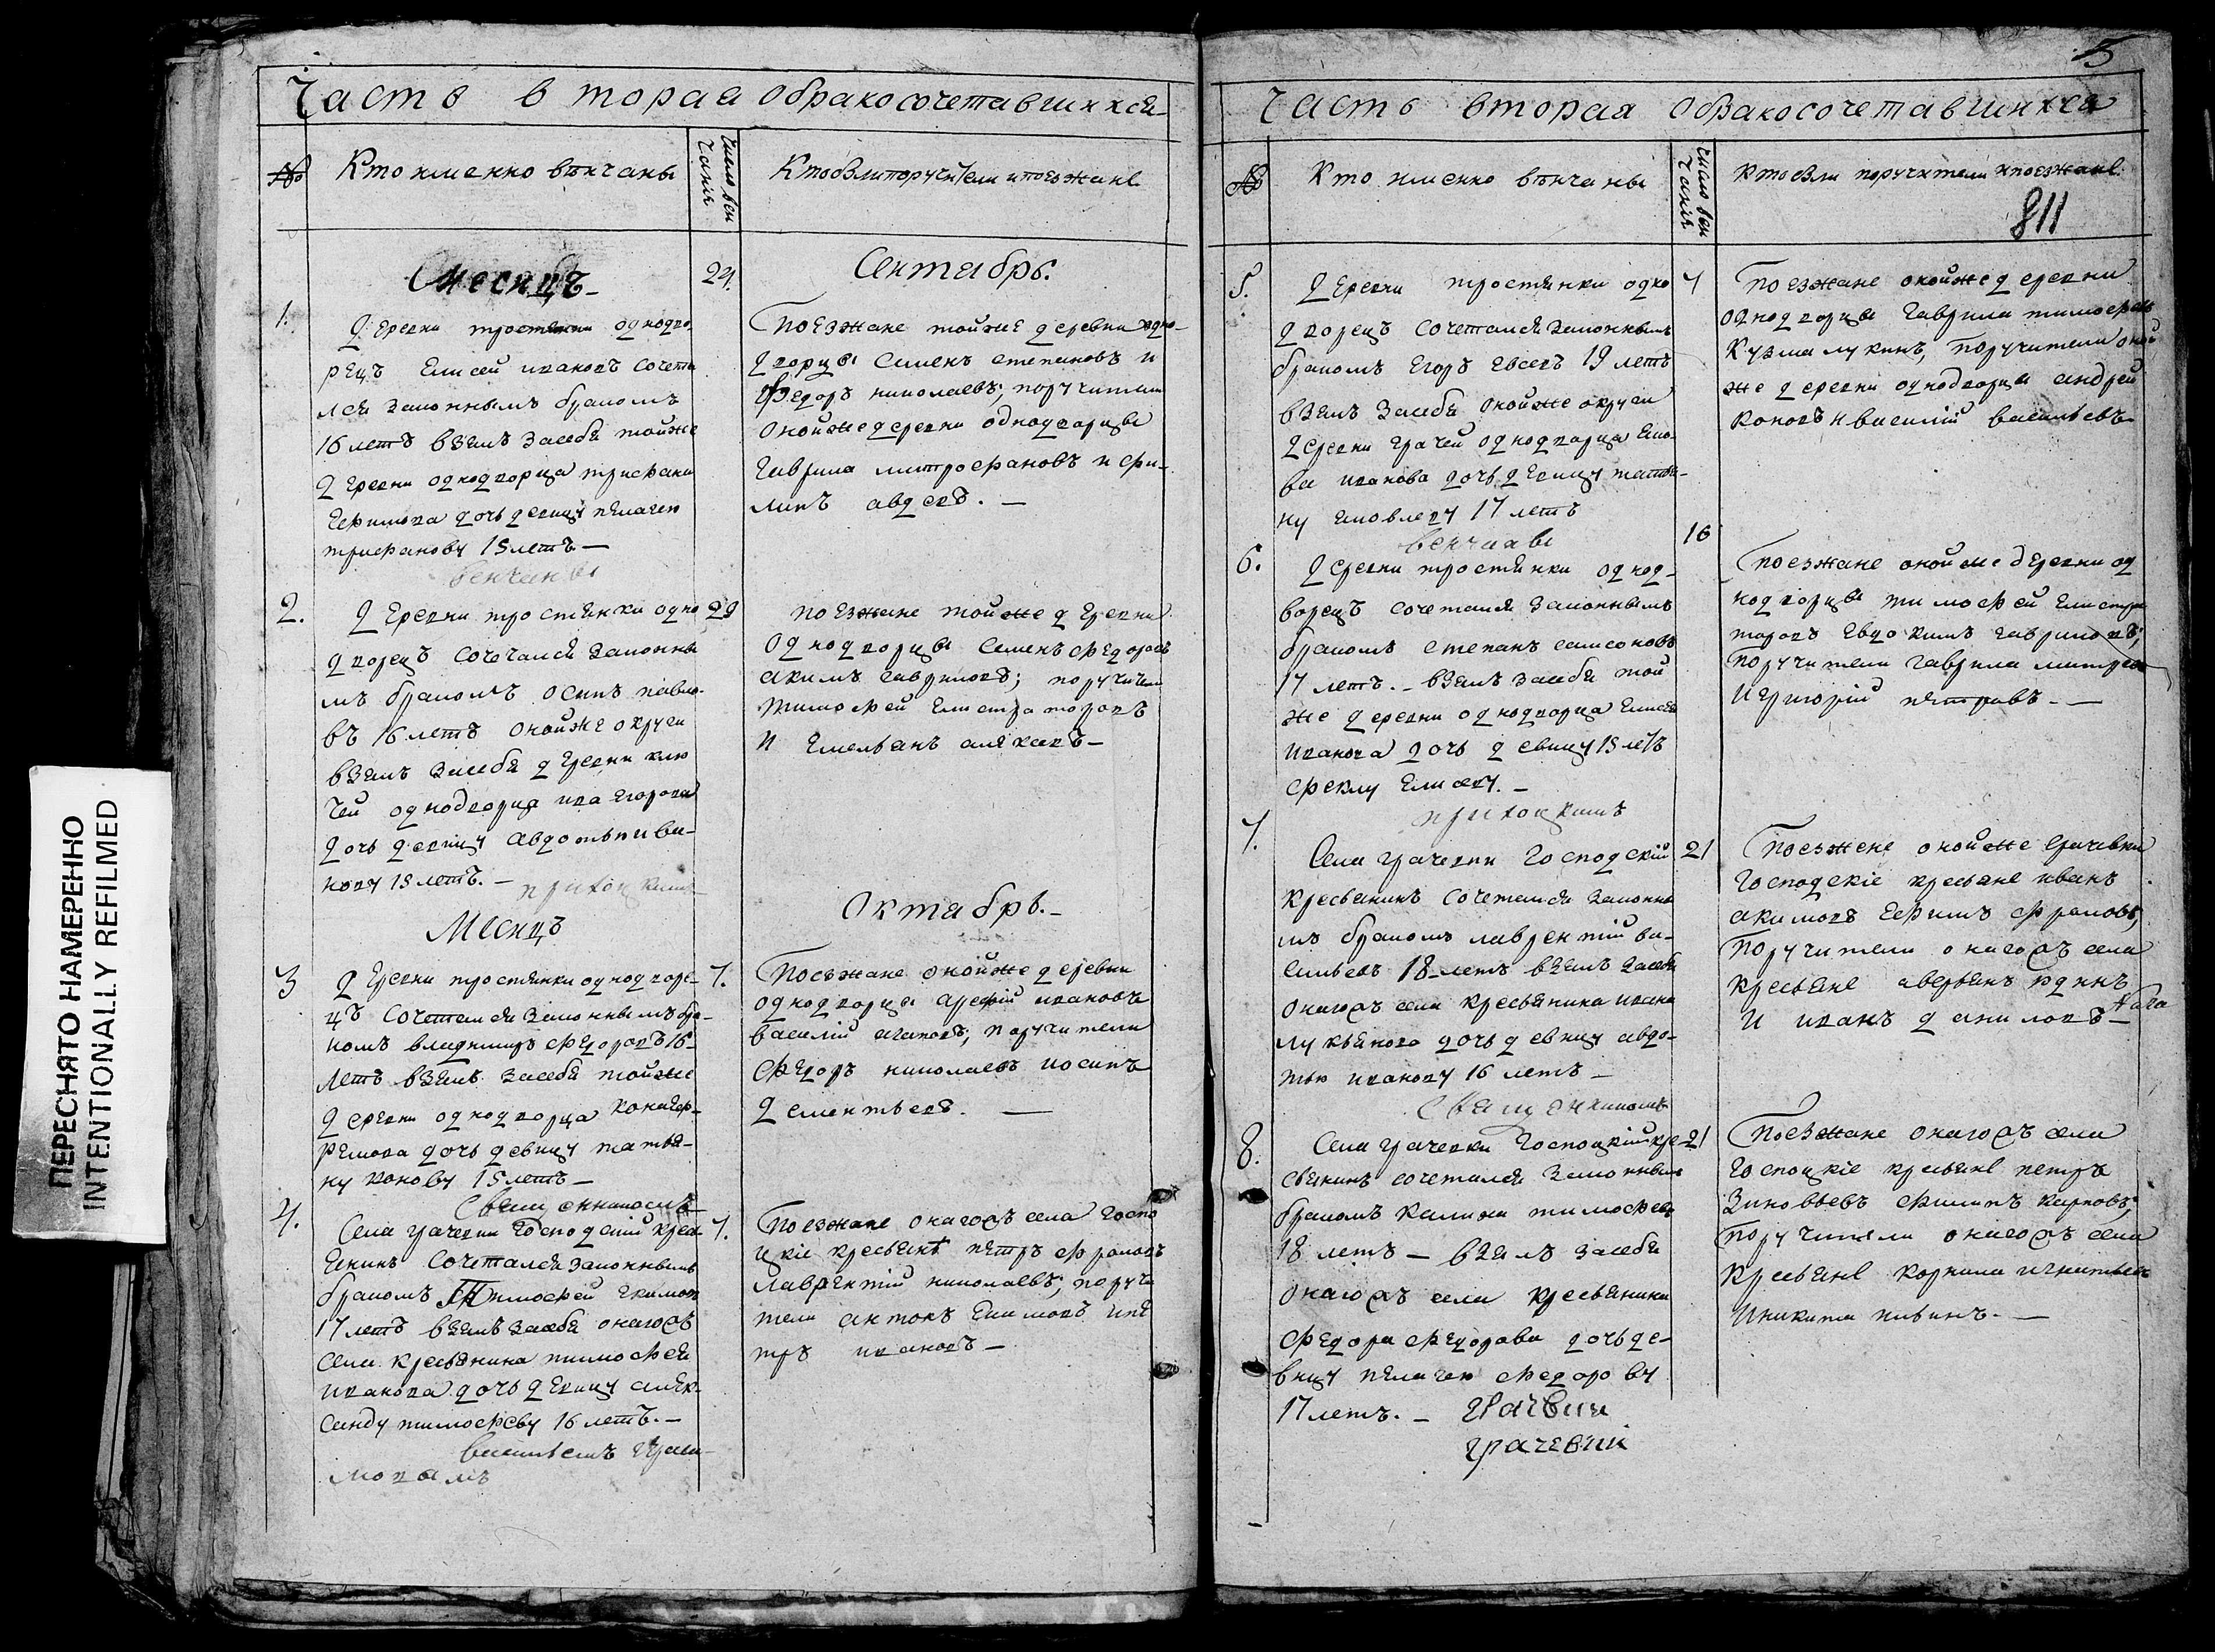 ПЕРЕСНЯТО НАМЕРЕННО
INTENTIONALLY REFILMED
Часть вторая обракосочетавшихся
№
Кто именно венчаны
Число вен
чания
Кто были поручители и поезжане
Месяцъ
24.
Сентябрь.
1.
Деревни тростянки однодво
рецъ Елисей ивановъ сочета
лся законнымъ бракомъ
16 летъ взялъ засебя тойже
деревни однодворца трифана
Ефимова дочь девицу пелагею
трифанову 15 летъ —
венчаны
Поезжане тойже деревни одно-
дворцы Семенъ степановъ и
Федоръ николаевъ; поручители
онойже деревни однодворцы
Гаврила митрофановъ и фи-
липъ авдевъ. —
2.
Деревни тростянки одно
29
дворецъ сочетался законны
мъ бракомъ осипъ павло-
въ 16 летъ онойже округи
взялъ засебя деревни клю
чей однодворца ива егорова
дочь девицу авдотью ива-
нову 15 летъ. —
поезжане тойже деревни
Однодворцы Семенъ федоровъ
акимъ гавриловъ; поручители
тимофей Елистраторовъ
и Емельянъ
Месяцъ
Октябрь. —
3
Деревни тростянки однодворе-
7.
цъ сочетался законнымъ бра-
комъ владимиръ федоровъ 16
летъ взялъ засебя тойже
деревни однодворца
дочь девицу татья-
ну конову 15 летъ —
Поезжане онойже деревни
однодворцы арефий ивановъ
василий агаповъ; поручители
Федоръ николаевъ иосипъ
Дементьевъ. —
4.
Села грачевки Господский крест-
7.
енинъ сочетался законнымъ
бракомъ Тимофей Екимовъ
17 летъ взялъ засебя онагожъ
села крестьянина тимофея
иванова дочь девицу алек-
санду тимофеву 16 летъ. —
Поезжане онагожъ села госпо
цкие крестьяне петръ фраловъ
Лаврентий николаевъ; поручи
тели антонъ Екимовъ ипе
тръ ивановъ —
5
Часть вторая обракосочетавшихся
№
Кто именно венчаны
Число вен
чания
Кто были поручители и поезжане.
811
5.
Деревни тростянки одно
7
дворецъ сочетался законнымъ
бракомъ Егоръ Евсевъ 19 летъ
взялъ засебя онойже округи
деревни грачей однодворца Яко-
ва иванова дочь девицу татья-
ну яковлеву 17 летъ
венчаны
Поезжане онойже деревни
однодворцы Гаврила тимофеевъ
Кузма лукинъ, поручители оной
же деревни однодворцы андрей
коновъ и василий васильевъ
16
6.
Деревни тростянки однод-
ворецъ сочетался законнымъ
бракомъ степанъ самсоновъ
17 летъ. — взялъ засебя той
же деревни однодворца Елисея
иванова дочь девицу 15 летъ
феклу Елисеву. —
Поезжане онойже деревни од
нодворцы тимофей Елистра
торовъ Евдокимъ гавриловъ;
поручители гаврила
И григорий петровъ. —
7.
Села грачевки Господский
21
кресьянинъ сочетался законны
мъ бракомъ лаврентий ва-
сильевъ 18 летъ взялъ засебя
онагожъ села кресьянина ивана
лукьянова дочь девицу авдо-
тью иванову 16 летъ —
Поезжене онойже грачевки
Господские кресьяне иванъ
акимовъ Ефимъ фраловъ,
поручители онагожъ села
кресьяне аверьянъ
И иванъ даниловъ —
8.
Села грачевки Господский кре-
21
сьянинъ сочетался законнымъ
бракомъ калина тимофевъ
18 летъ — взялъ засебя
онагожъ села кресьянина
федора федорова дочь де-
вицу пелагею федорову
17 летъ. —
грачевки
Поезжане онагожъ села
Господские кресьяне петръ
Зиновьевъ Филипъ карповъ,
поручители онагожъ села
Кресьяне корнила игнатьевъ
Иникита